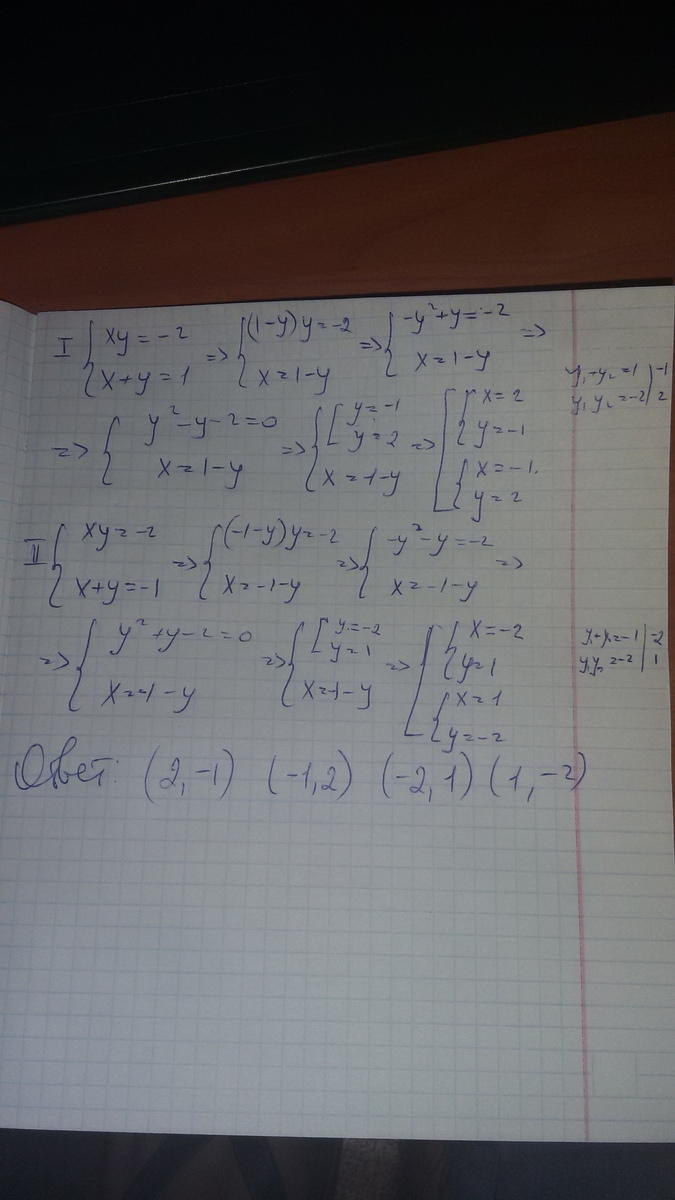 I { xy = -2 ; x+y = 1 => { (1-y)y = -2 ; x = 1-y => { -y²+y = -2 ; x = 1-y =>
y₁+y₂ = 1 | -1
y₁y₂ = -2 | 2
=> { y²-y-2=0 ; x = 1-y => { [ y = -1 ; y = 2 ; x = 1-y => [ { x = 2 ; y = -1 { x = -1. ; y = 2
II { xy = -2 ; x+y = -1 => { (-1-y)y = -2 ; x = -1-y => { -y²-y = -2 ; x = -1-y =>
=> { y²+y-2=0 ; x = -1-y => { [ y = -2 ; y = 1 ; x = -1-y => [ { x = -2 ; y = 1 { x = 1 ; y = -2
y₁+y₂ = -1 | -2
y₁y₂ = -2 | 1
Ответ: (2,-1) (-1,2) (-2,1) (1,-2)